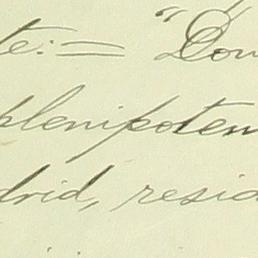 te:= "Don
plenipoten
drid, resid